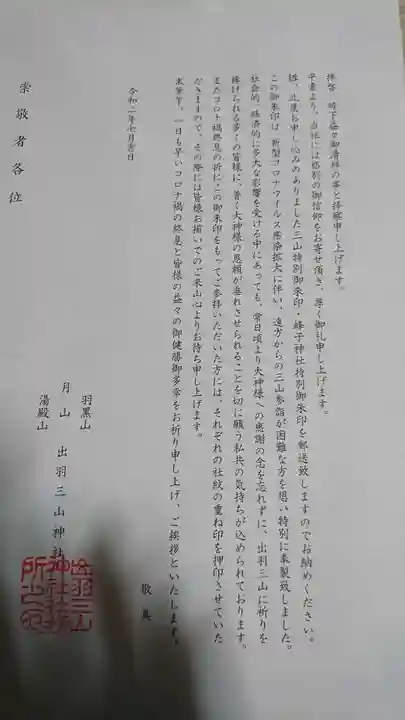 拝啓　時下益々御清祥の事と拝察申し上げます。
平素より、当社には格別の御信仰をお寄せ頂き、厚く御礼申し上げます。
扨、此度お申し込みのありました三山特別御朱印・蜂子神社特別御朱印を郵送致しますのでお納めください。
この御朱印は、新型コロナウイルス感染拡大に伴い、遠方からの三山参詣が困難な方を思い特別に奉製致しました。
社会的、経済的に多大な影響を受ける中にあっても、常日頃より大神様への感謝の念を忘れずに、出羽三山に祈りを
捧げられる多くの皆様に、普く大神様の恩頼が垂れさせられることを切に願う私共の気持ちが込められております。
またコロナ禍終息の折にこの御朱印をもってご参拝いただいた方には、それぞれの社紋の重ね印を押印させていた
だきますので、その際には皆様お揃いでのご来山心よりお待ち申し上げます。
末筆乍、一日も早いコロナ禍の終息と皆様の益々の御健勝御多幸をお祈り申し上げ、ご挨拶といたします。
敬具
令和二年七月吉日
羽黒山
月山　出羽三山神社
湯殿山
崇敬者各位